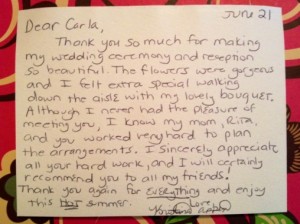 June 21
Dear Carla,
Thank you so much for making
my wedding ceremony and reseption
so beautiful. The flowers were gorgeous
and I felt extra special walking
down the aisle with my lovely bouquet.
Although I never had the pleasure of
meeting you, I know my mom, Rita,
and you worked very hard to plan
the arrangements. I sincerely appreciate
all your hard work, and I will certainly
recommend you to all my friends.
Thank you again for everything and enjoy
this hot summer. Love